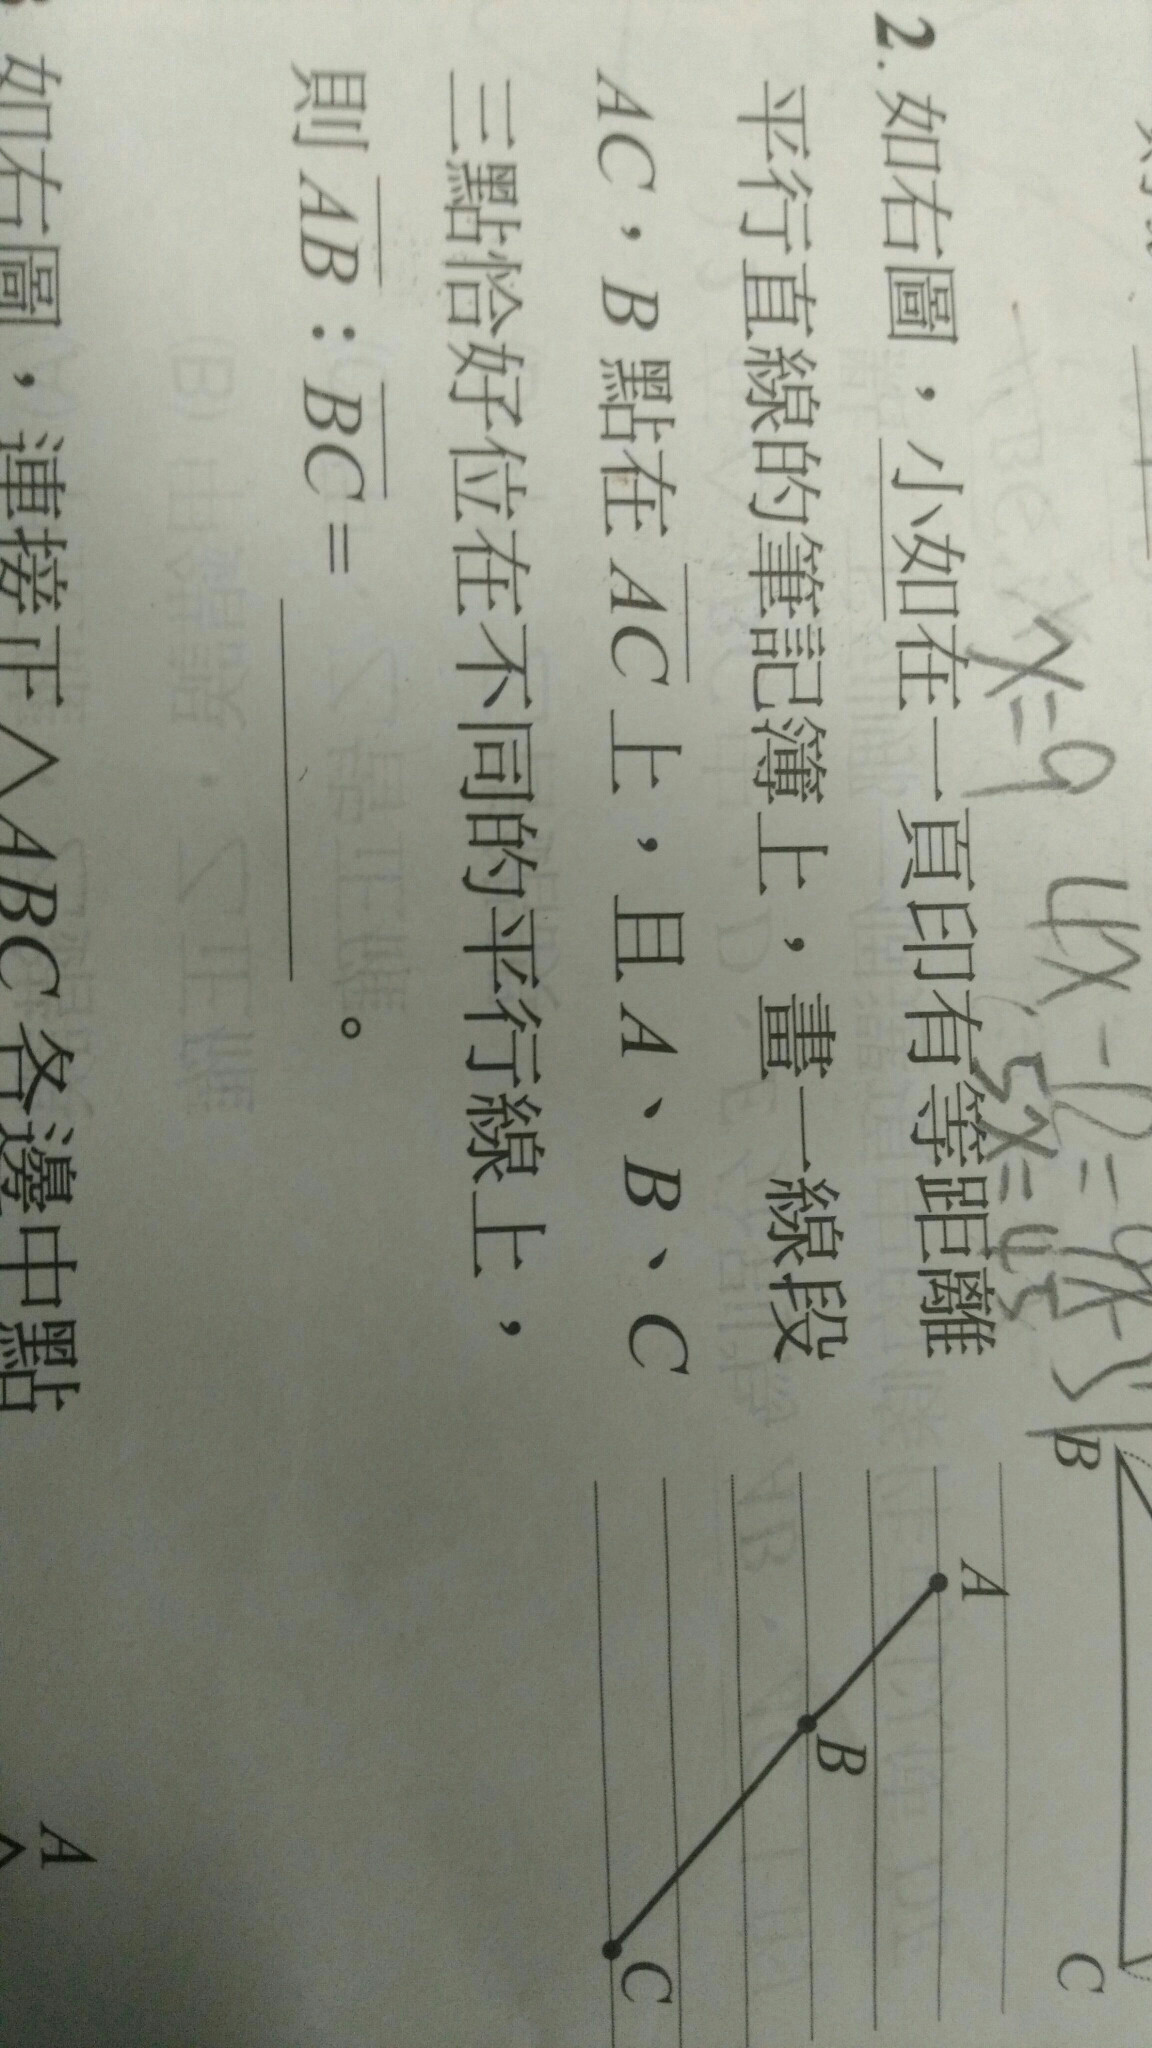 x=9
4x-
5x=45
B
C
2. 如右圖，小如在一頁印有等距離
平行直線的筆記簿上，畫一線段
AC，B 點在 AC 上，且 A、B、C
三點恰好位在不同的平行線上，
則 AB：BC = ＿＿＿＿。
A
B
C
如右圖，連接正△ABC 各邊中點
A